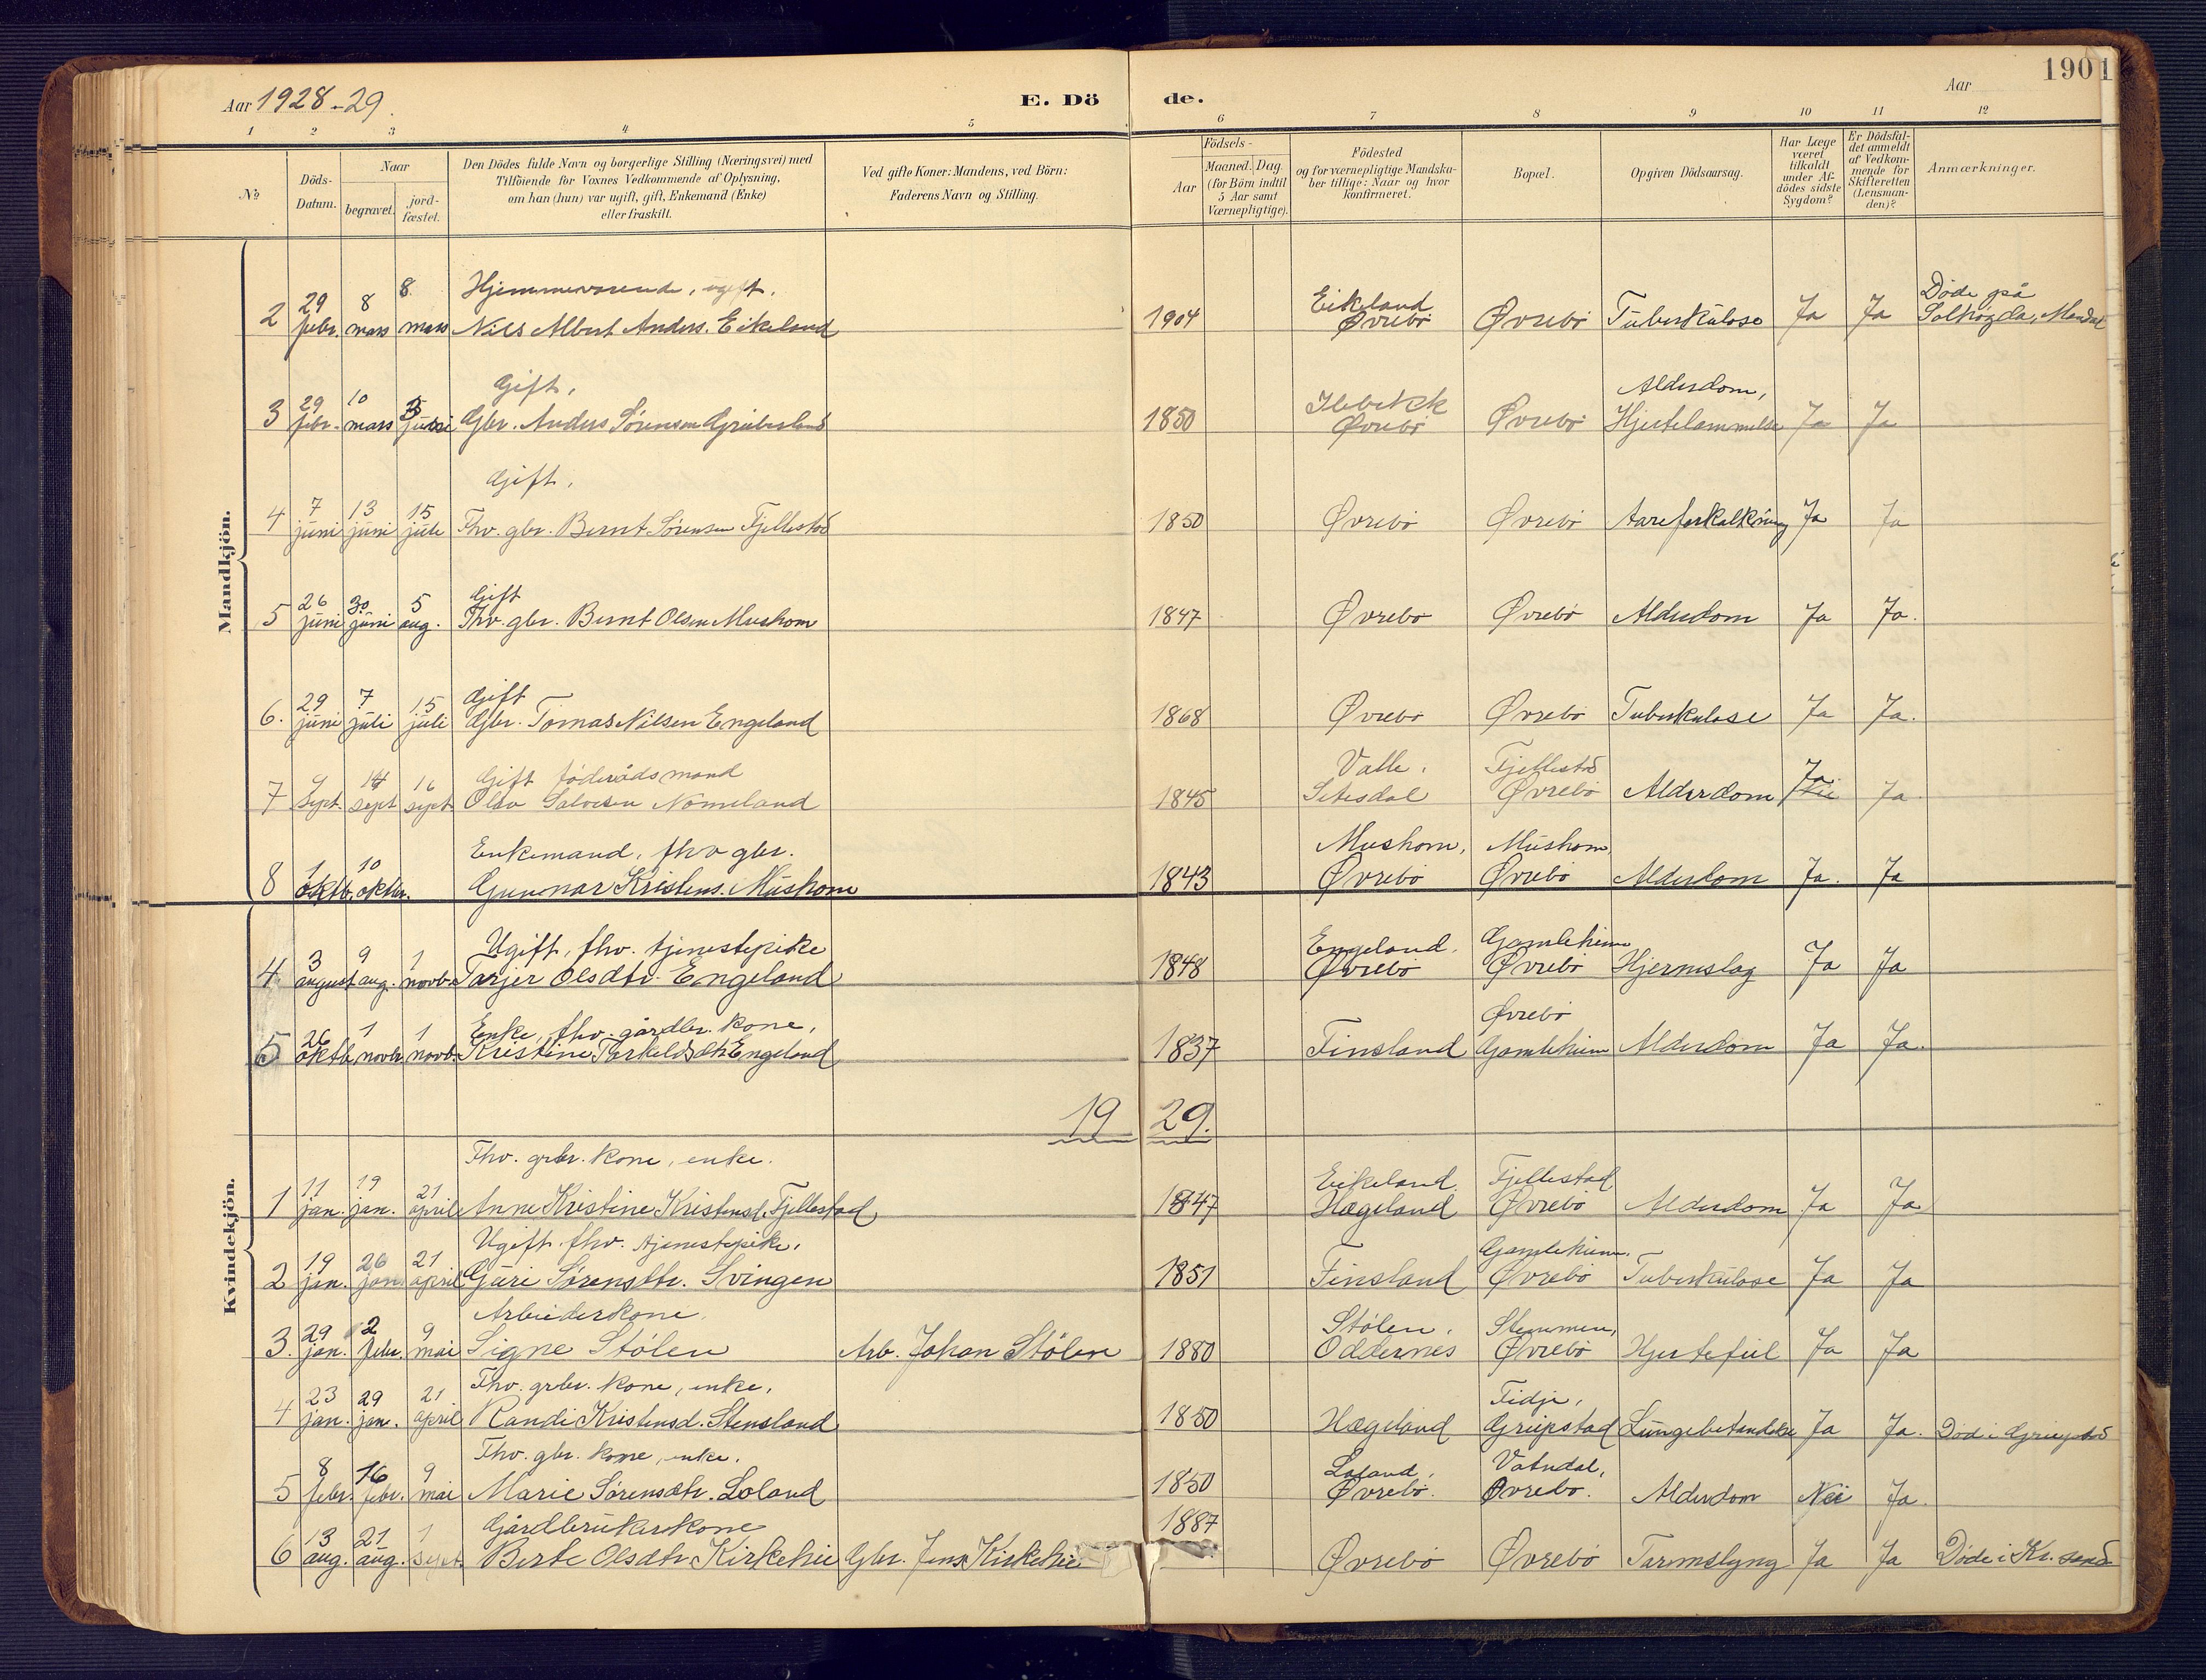 Aar 1928-29.
E. Dö de.
Aar
1901
1 2 3 4 5 6 7 8 9 10 11 12
№
Döds-Datum.
Naar
begravet.
jord-fæstet.
Den Dödes fulde Navn og borgerlige Stilling (Næringsvei) med
Tilföiende for Voxnes Vedkommende af Oplysning,
om han (hun) var ugift, gift, Enkemand (Enke)
eller fraskilt.
Ved gifte Koner: Mandens, ved Börn:
Faderens Navn og Stilling.
Födsels-
Aar
Maaned. Dag.
(for Börn indtil
5 Aar samt
Værnepligtige).
Födested
og for værnepligtige Mandska-
ber tillige: Naar og hvor
konfirmeret.
Bopæl.
Opgiven Dödsaarsag.
Har Læge
været
tilkaldt
under Af-
dödes sidste
Sygdom?
Er Dödsfal-
det anmeldt
af Vedkom-
mende for
Skifteretten
(Lensman-
den)?
Anmærkninger.
Mandkjön.
Hjemmeværende, ugift.
2 29 febr. 8 mars 8. mars Nils Albert Anders. Eikeland 1904 Eikeland Øvrebö Øvrebö Tuberkulose Ja Ja Döde på Solhögda, Mandal
Gift,
3 29 febr. 10 mars Gbr. Anders Sörensen 1850 Øvrebö Øvrebö Alderdom, Hjertelammelse Ja Ja
Gift,
4 7 juni 13 juni 15 juli Fhv. gbr. Bernt Sörensen Fjellestad 1850 Øvrebö Øvrebö Aareforkalkning Ja Ja
Gift
5 26 juni 30 juni 5 aug. Fhv. gbr. Bernt Olsen Mushom 1847 Øvrebö Øvrebö Alderdom Ja Ja.
Gift
6. 29 juni 7 juli 15 juli Gbr. Tomas Nilsen Engeland 1868 Øvrebö Øvrebö Tuberkulose Ja Ja.
Gift föderådsmand
7 Sept. 14 sept 16 sept. Olav Salvesen Nomeland 1845 Valle, Setesdal Fjellestad Øvrebö Alderdom Ja Ja
Enkemand, fhv gbr.
8 1 oktb. 10 oktbr. Gunnar Kristens. Mushom 1843 Mushom, Øvrebö Mushom, Øvrebö Alderdom Ja. Ja
Kvindekjön.
Ugift, fhv. tjenestepike
4 3 august 9 aug. 1 novb. Tarjer Olsdtr. Engeland 1848 Engeland, Øvrebö Gamleheim Øvrebö Hjernslag Ja Ja
Enke, fhv. gårdbr. kone,
5 26 oktb. 1 novbr 1 novb. Kristine Tarkeldsdtr. Engeland 1837 Finsland Øvrebö Gamleheim Alderdom Ja Ja.
19 29.
Fhv. grbr. kone, enke.
1 11 jan. 19 jan. 21 april Anne Kristine Kristensd. Fjellestad 1847 Eikeland, Hægeland Fjellestad Øvrebö Alderdom Ja Ja
Ugift. fhv. tjenestepike.
2 19 jan. 26 jan 21 april Guri Sörensdtr. Svingen 1851 Finsland Gamleheim, Øvrebö Tuberkulose Ja Ja
Arbeiderkone.
3. 29 jan. 2 febr. 9 mai Signe Stölen Arb. Johan Stölen 1880 Stölen, Oddernes Stemmen, Øvrebö Hjertefeil Ja Ja
Fhv. grbr. kone, enke,
4 23 jan. 29 jan. 21 april Randi Kristensd. Stensland 1850 Hægeland Tidje, Greipstad Lungebetendelse Ja Ja. Död i Greipstad
Fhv. gbr. kone, enke.
5 8 febr. 16 febr. 9 mai Marie Sörensdtr. Loland 1850 Loland, Øvrebö. Vatndal, Øvrebö. Alderdom Nei Ja.
Gårdbrukerkone
6 13 aug. 21 aug. 1 sept. Berte Olsdtr. Kirkehei Gbr. Jens Kirkehei 1887 Øvrebö Øvrebö Tarmslyng Ja Ja Döde i Kr.sand